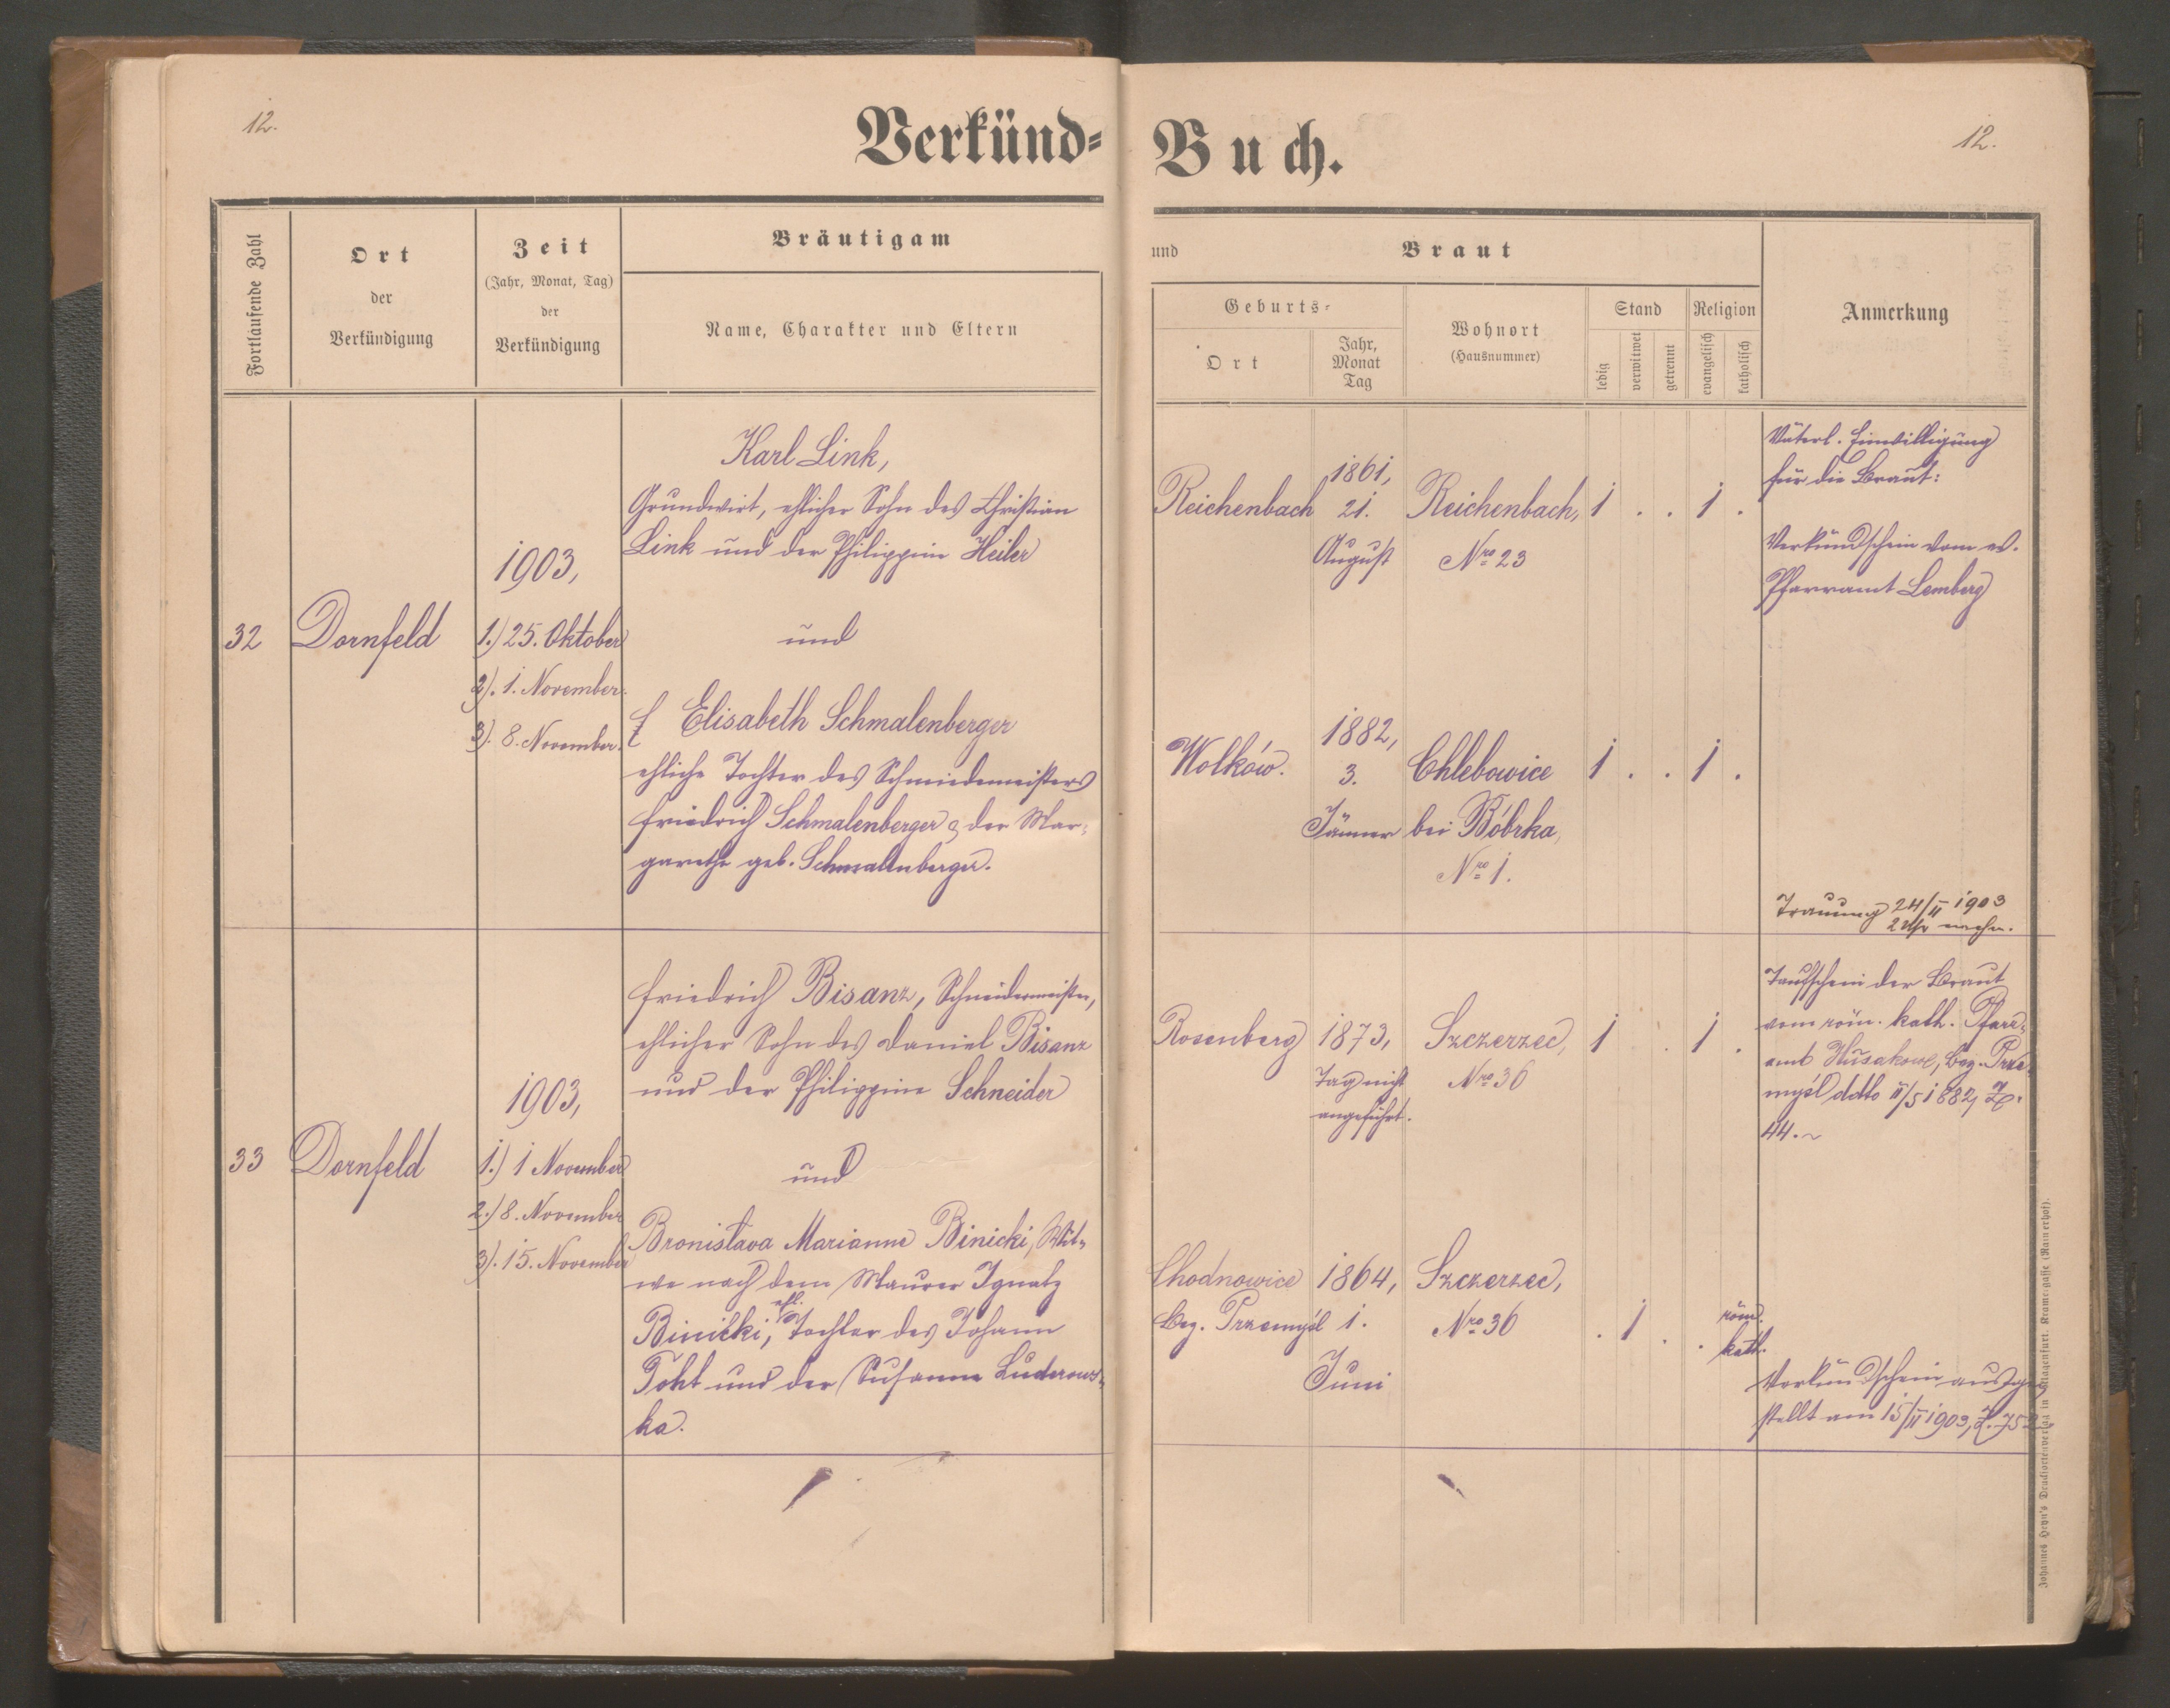 12.
Verkünd=
Fortlaufende Zahl
Ort
der
Verkündigung
Zeit
(Jahr, Monat, Tag)
der
Verkündigung
Bräutigam
Name, Charakter und Eltern
32
Dornfeld
1903,
1.) 25. Oktober
2). 1. November.
3). 8. November.
Karl Link,
Grundwirt, ehlicher Sohn des Christian
Link und der Philippine Heiler
und
Elisabeth Schmalenberger
ehliche Tochter des Schmiedemeisters
Friedrich Schmalenberger & der Mar-
garethe geb. Schmalenberger.
33
Dornfeld
1903,
1.) 1 November
2.) 8. November
3). 15. November
Friedrich Bisanz, Schneidermeister,
ehlicher Sohn des Daniel Bisanz
und der Philippine Schneider
und
Bronislava Marianne Binicki, Wit-
we nach dem Maurer Ignatz
Binicki, ehl. Tochter des Johann
und der Susanna Luderows-
ka.
12.
Buch.
und
Braut
Geburts-
Ort
Jahr,
Monat
Tag
Wohnort
(Hausnummer)
Stand
ledig
verwitwet
getrennt
Religion
evangelisch
katholisch
Anmerkung
Reichenbach
1861,
21.
August
Reichenbach,
Nro 23
1 . . 1 .
Väterl. Einwilligung
für die Braut:
Verkündschein vom ev.
Pfarramt Lemberg
Wolków.
1882,
3.
Jänner
Chlebowice
bei Bóbrka,
Nro 1.
1 . . 1 .
Trauung 24/II 1903
2 Uhr nachm.
Rosenberg
1873,
Tag nicht
angeführt.
Szczerzec,
Nro 36
1 . 1 .
Taufschein der Braut
vom röm. kath. Pfarr-
amt Husakow, Bez. Prze-
myśl ddto II/5 1882,
44.~
Chodnowice
Bez. Przemyśl
1864,
1.
Juni
Szczerzec,
Nro 36
. 1 . .
röm.
kath.
Verkündschein ausge-
stellt am 15/II 1903, Z.
Johannes Heyn's Drucksortenverlag in Klagenfurt. Kramergasse (Rainerhof).